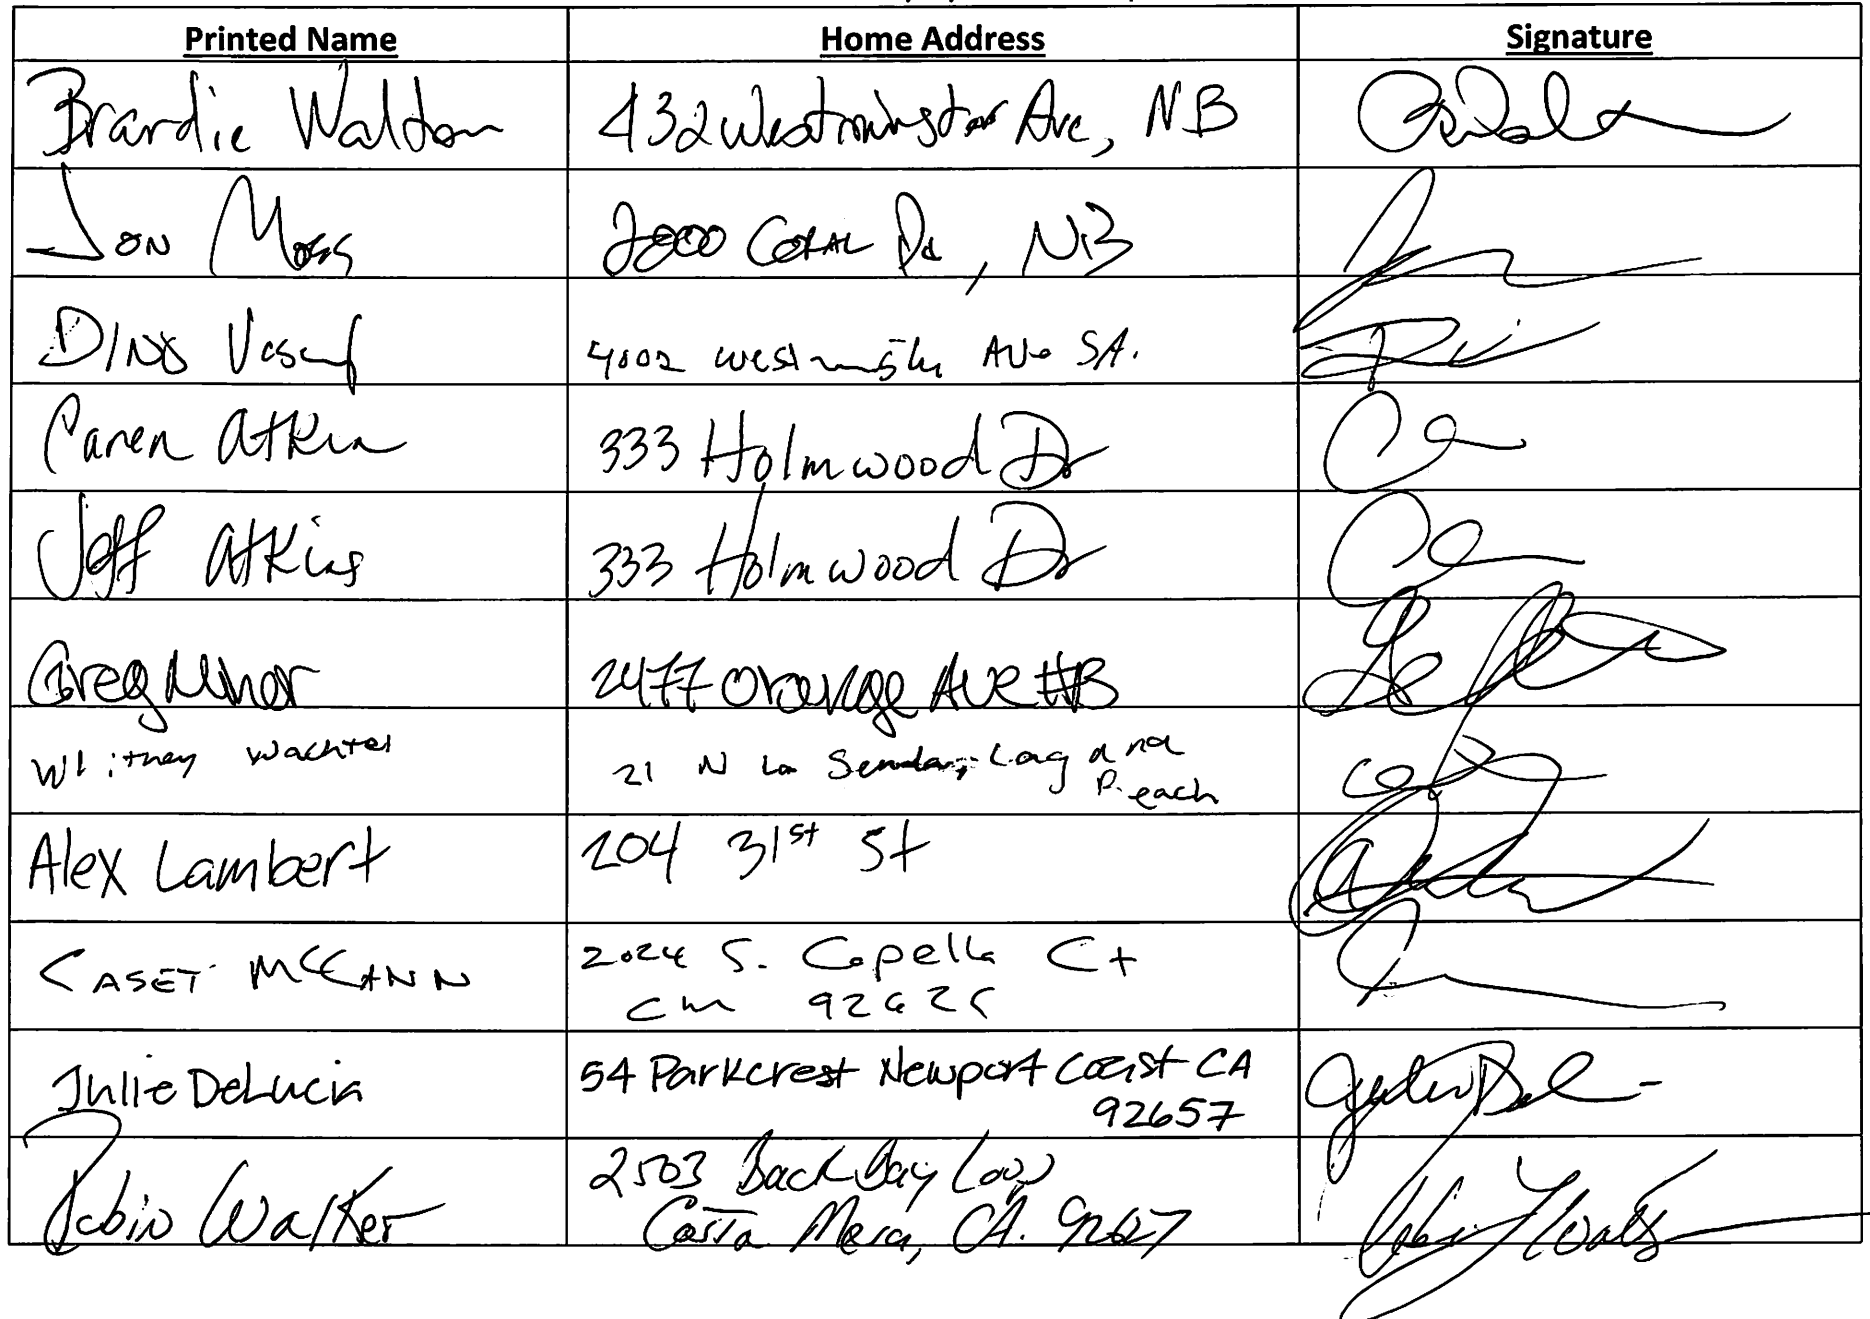 Printed Name Home Address Signature
Brardie Waldon 432 Westminster Ave, NB
Jon Moss 2000 Coral Dr, NB
Dino 4002 Westminster Ave SA.
Caren Atkin 333 Holmwood Dr
Jeff Atkins 333 Holmwood Dr
Greg Minor 2477 Orange Ave #B
Whitney Wachtel 21 N La Senda, Laguna
Beach
Alex Lambert 204 31st St
CASEY MCCANN 2024 S. Capella Ct
CM 92626
Julie DeLucia 54 Parkcrest Newport Coast CA
92657
Robin Walker 2503 Back Bay Loop
Costa Mesa, CA. 92627